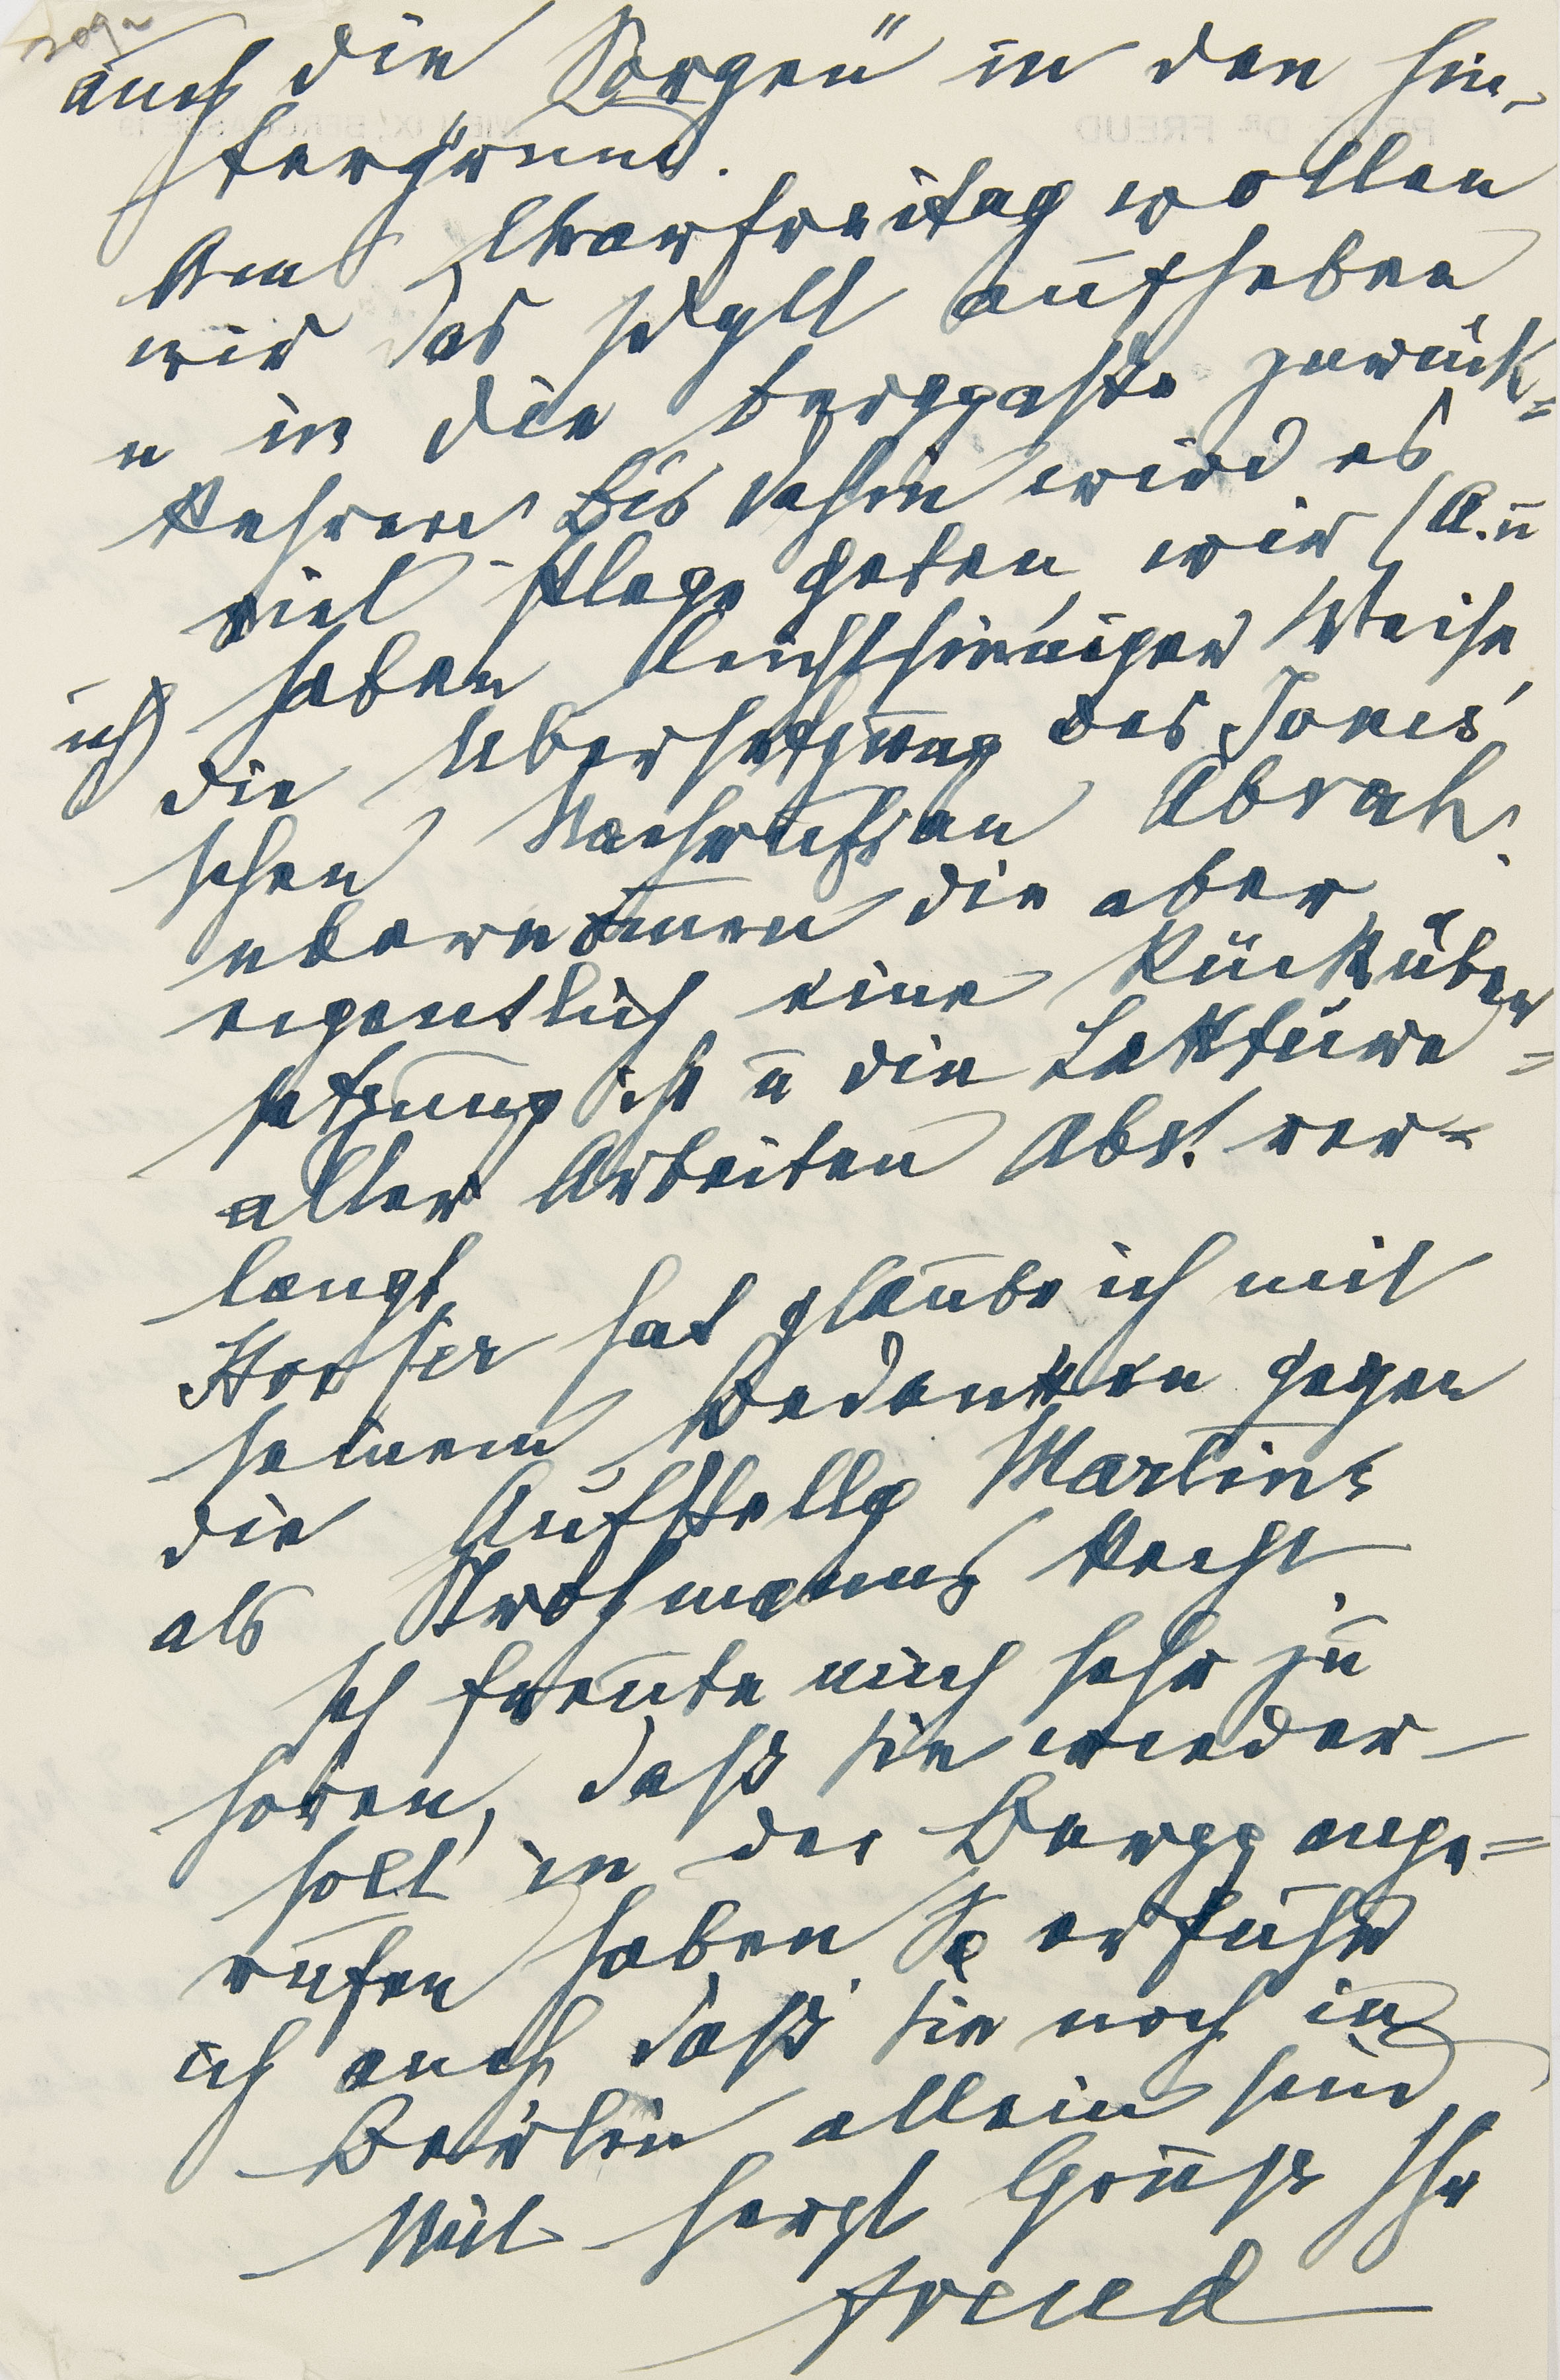 auch die „Sorgen" in den Hin-
tergrund.
Am Charfreitag wollen
wir das Idyll aufheben
u in die Berggasse zurück=
kehren. Bis dahin wird es
viel Plage geben, wir (A. u
ich) haben leichtsinniger Weise
die Übersetzung des Jones'
schen Nachrufs an Abrah.
übernommen die aber
eigentlich eine Rücküber=
setzung ist u die Lektüre
aller Arbeiten Abr. ver-
langt.
hat glaube ich mit
seinem Bedenken gegen
die Aufstellg Martins
als Strohmanns Recht.
Ich freute mich sehr zu
hören, daß Sie wieder
soll in der Bergg ange=
rufen haben So erfuhr
ich auch daß Sie noch in
Berlin allein sind
Mit herzl Gruß Ihr
Freud